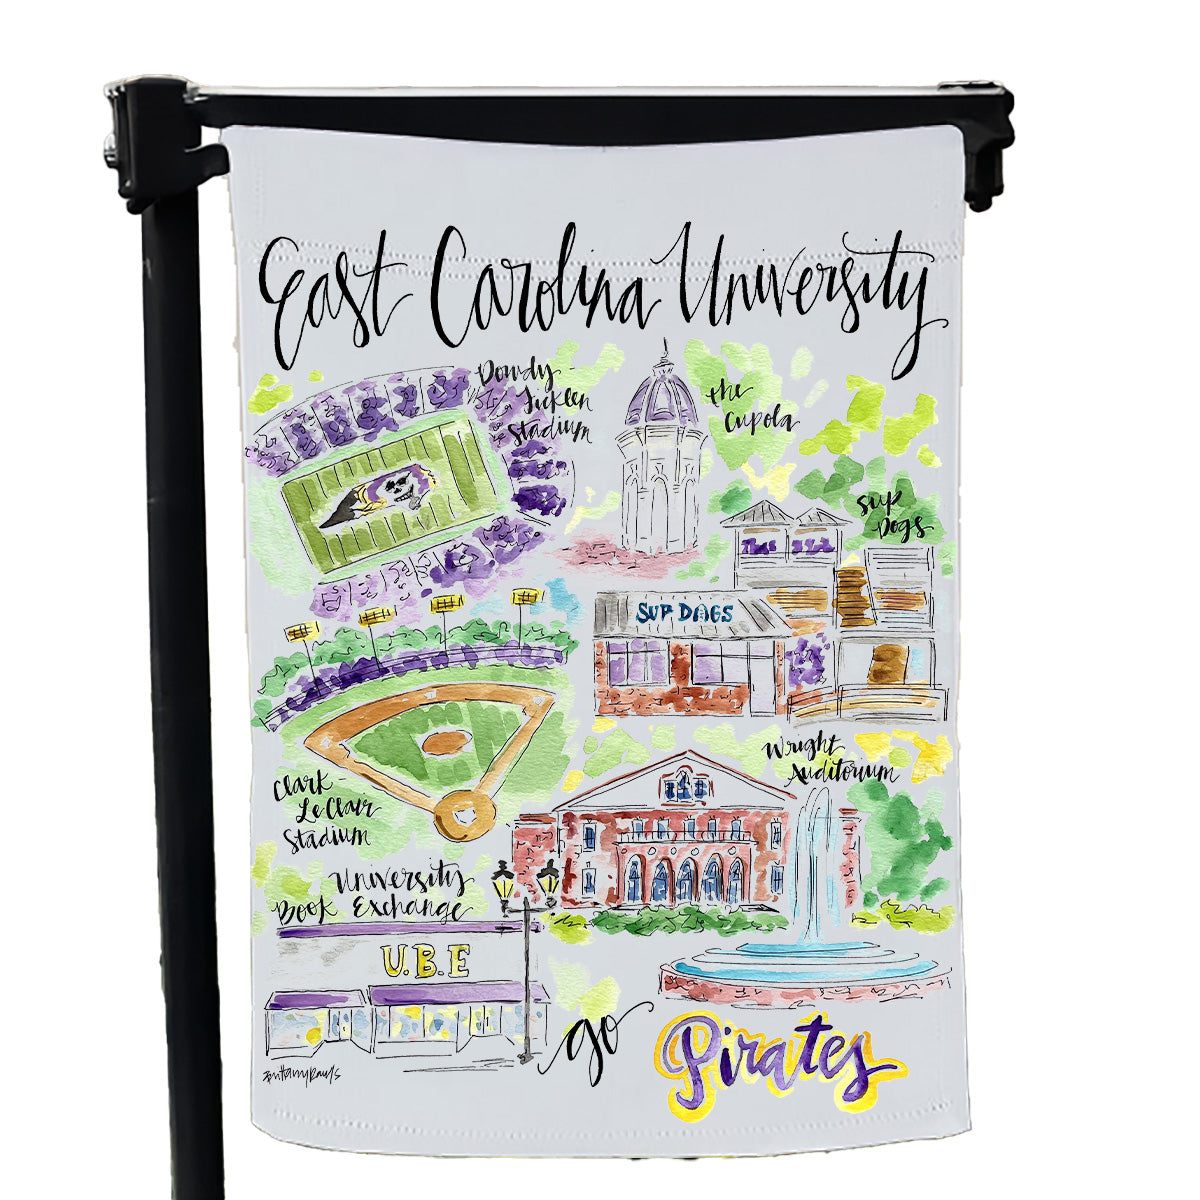 East Carolina University
Dowdy-
Ficklen
Stadium
the
Cupola
Sup
Dogs
SUP DOGS
Clark-
LeClair
Stadium
Wright
Auditorium
University
Book Exchange
U.B.E
go
Pirates